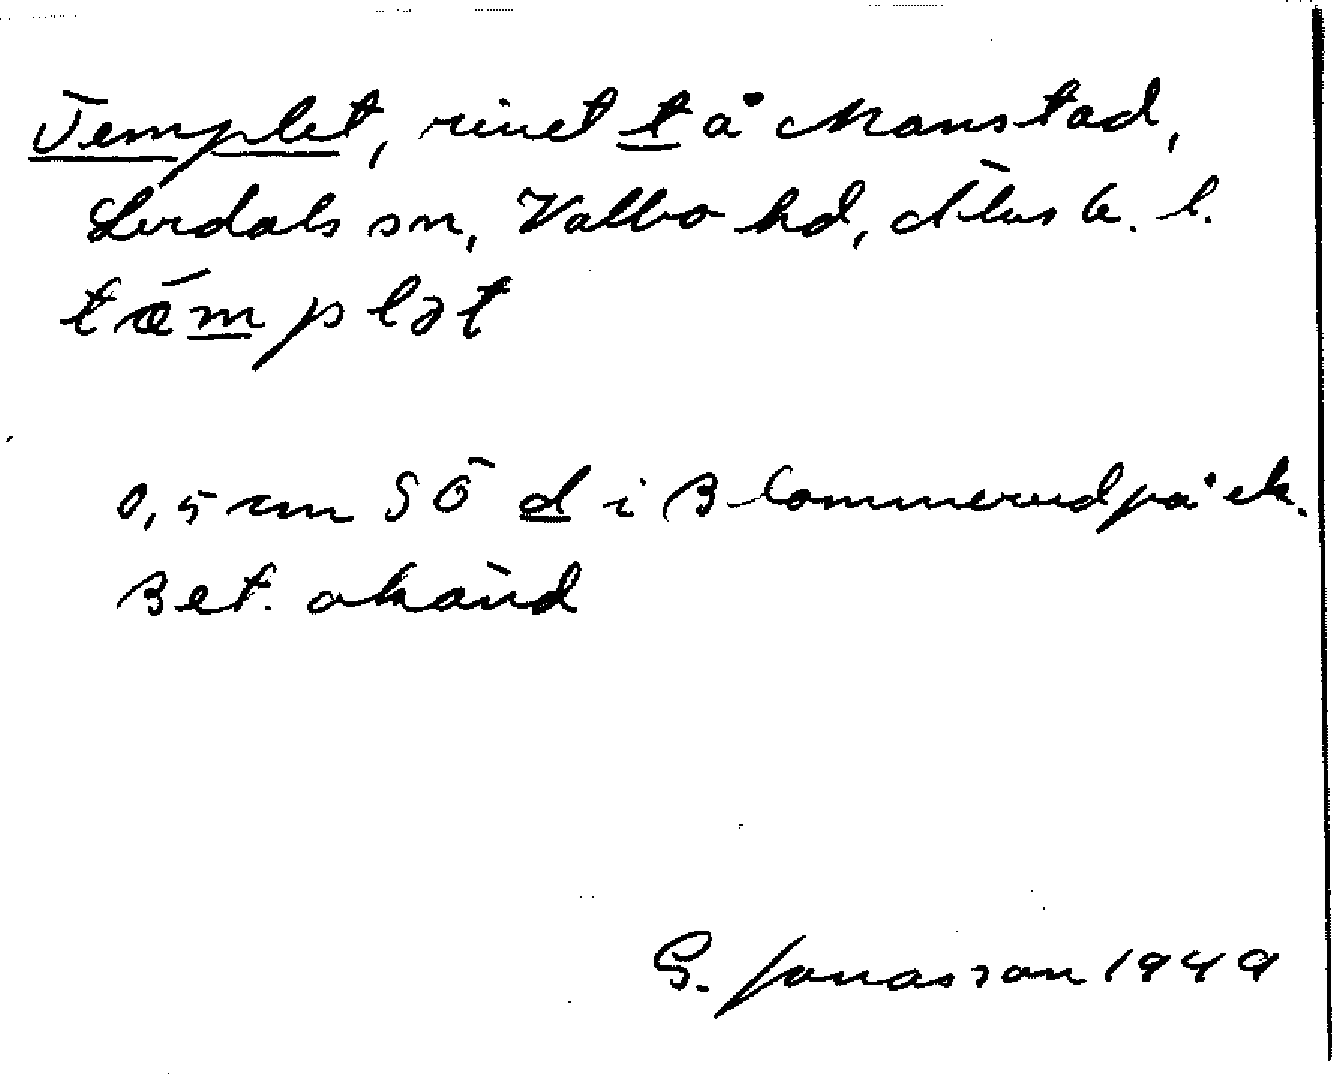 Templet, rivet t å Manstad,
Lerdals sn, Valbo hd, Älvsb. l.
tæ̀mplət
0,5 cm SÖ d i Blommerud på ek.
Bet. okänd
G. Jonasson 1949